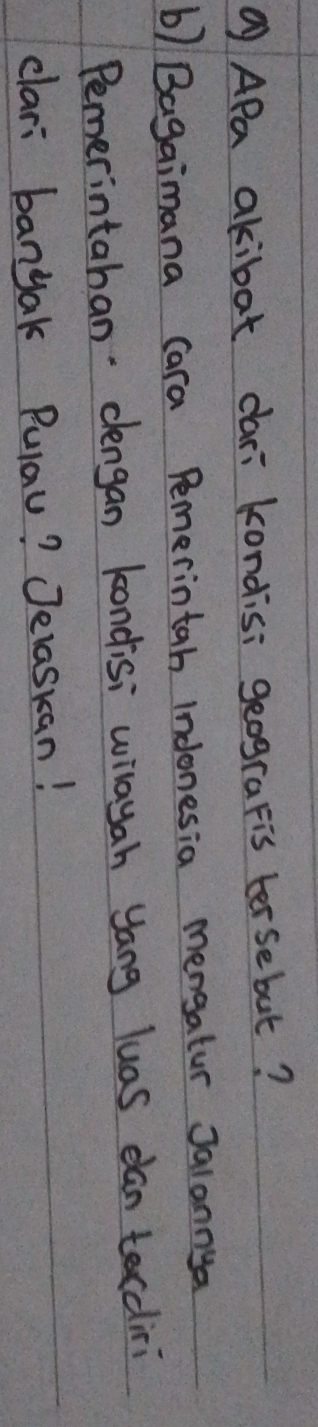 a) APa akibat dari kondisi geografis tersebut?
b) Bagaimana cara Pemerintah Indonesia mengatur Jalannya
Pemerintahan dengan kondisi wilayah yang luas dan terdiri
dari banyak Pulau? Jelaskan!